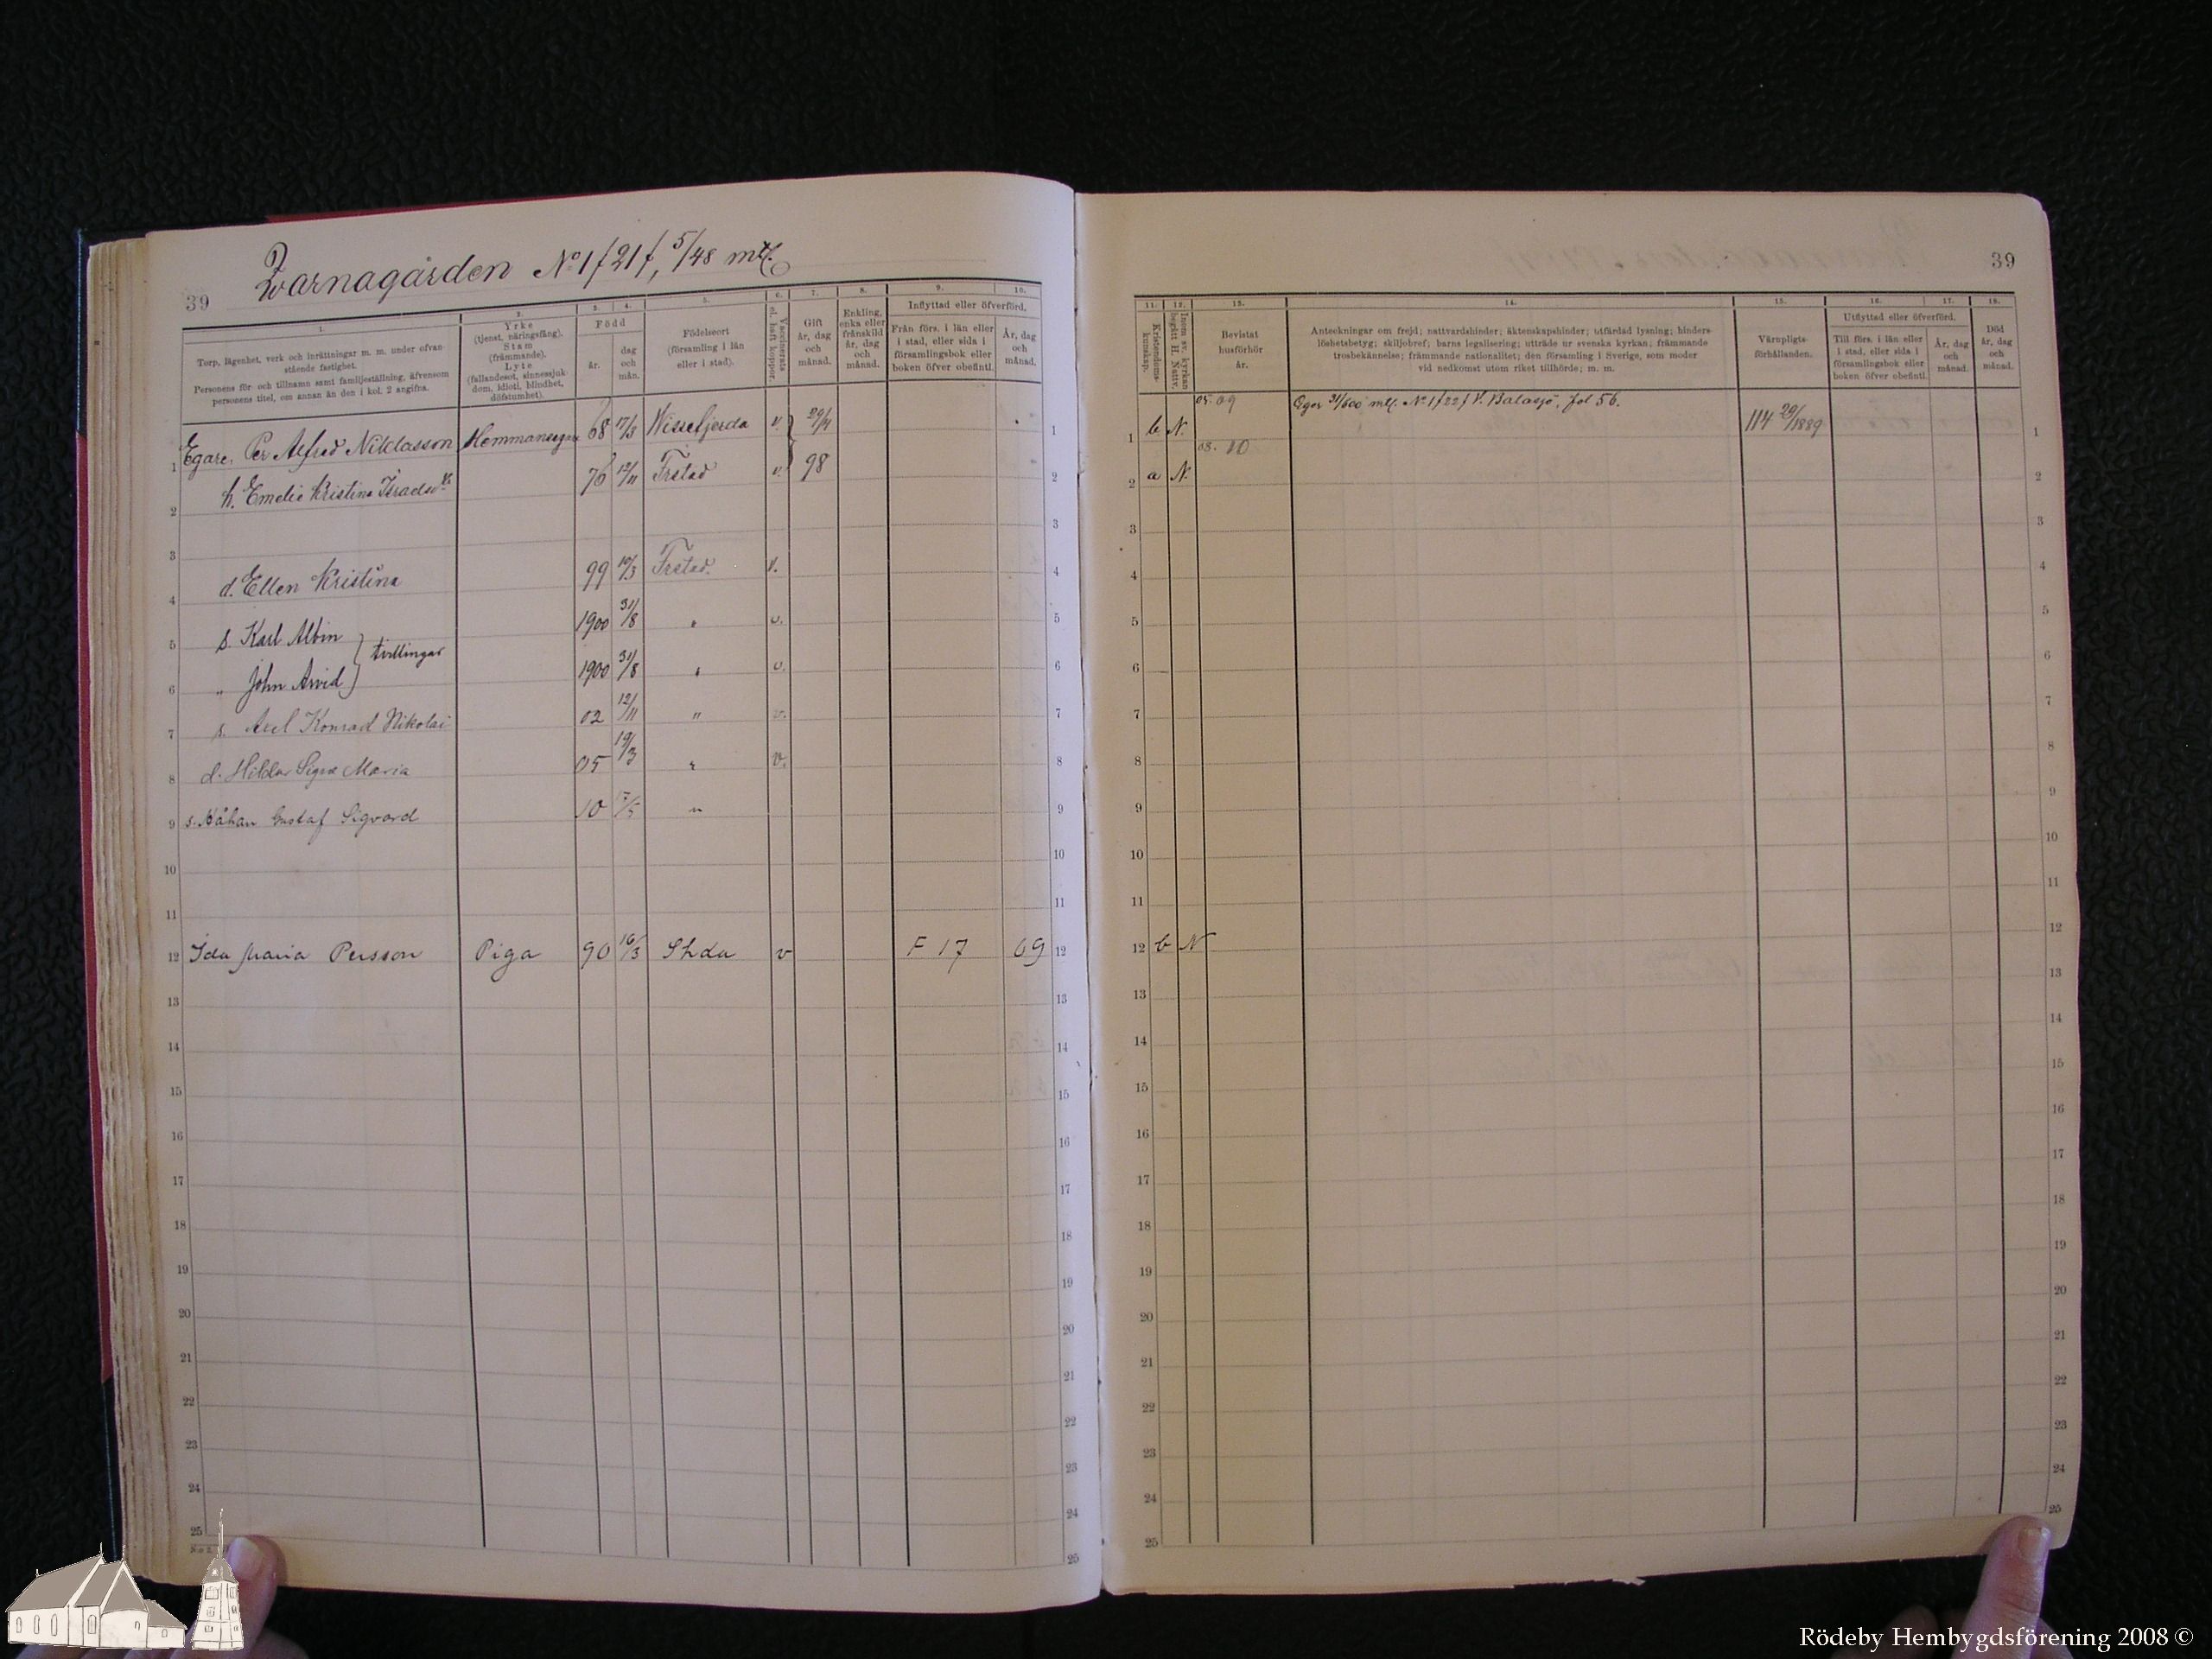 39
Qvarnagården No 1 f 21 f, 5/48 mtl.
1. 2. 3. 4. 5. 6. 7. 8. 9. 10.
Torp, lägenhet, verk och inrättningar m. m. under ofvan-
stående fastighet.
Personens för- och tillnamn samt familjeställning, äfvensom
personens titel, om annan än den i kol. 2 angifna.
Yrke
(tjenst, näringsfång).
Stam
(främmande).
Lyte
(fallandesot, sinnessjuk-
dom, idioti, blindhet,
döfstumhet).
Född
år.
dag
och
mån.
Födelseort
(församling i län
eller i stad).
Vaccinerats
el. haft koppor.
Gift
år, dag
och
månad.
Enkling,
enka eller
frånskild
år, dag
och
månad.
Inflyttad eller öfverförd.
Från förs. i län eller
i stad, eller sida i
församlingsbok eller
boken öfver obefintl.
År, dag
och
månad.
1 Egare, Per Alfred Niklasson Hemmansegare 68 17/3 Wissefjerda v. 29/4 1
2 h. Emelie Kristina Israelsdr 76 12/11 Frstad v. 98 2
3 3
4 d. Ellen Kristina 99 10/3 Frstad. v. 4
5 s. Karl Albin 1900 31/8 " v. 5
tvillingar
6 " John Arvid 1900 31/8 " v. 6
7 s. Axel Konrad Nikolai 02 12/11 " v. 7
8 d. Hilda Signe Maria 05 19/3 " v. 8
9 s. Håkan Gustaf Sigvard 10 " 9
10 10
11 11
12 Ida Maria Persson Piga 90 16/3 Shda v F 17 09 12
13 13
14 14
15 15
16 16
17 17
18 18
19 19
20 20
21 21
22 22
23 23
24 24
25 25
39
11. 12. 13. 14. 15. 16. 17. 18.
Kristendoms-
kunskap.
Inom sv. kyrkan
begått H. Nattv.
Bevistat
husförhör
år.
Anteckningar om frejd; nattvardshinder; äktenskapshinder; utfärdad lysning; hinders-
löshetsbetyg; skiljobref; barns legalisering; utträde ur svenska kyrkan; främmande
trosbekännelse; främmande nationalitet; den församling i Sverige, som moder
vid nedkomst utom riket tillhörde; m. m.
Värnpligts-
förhållanden.
Utflyttad eller öfverförd.
Till förs. i län eller
i stad, eller sida i
församlingsbok eller
boken öfver obefintl.
År, dag
och
månad.
Död
år, dag
och
månad.
05. 09 Eger 31/600 mtl. No 1 f 22 f V. Balasjö, fol 56.
1 b N. 114 29/1889 1
08. 10
2 a N. 2
3 3
4 4
5 5
6 6
7 7
8 8
9 9
10 10
11 11
12 b N 12
13 13
14 14
15 15
16 16
17 17
18 18
19 19
20 20
21 21
22 22
23 23
24 24
25 25
Rödeby Hembygdsförening 2008 ©